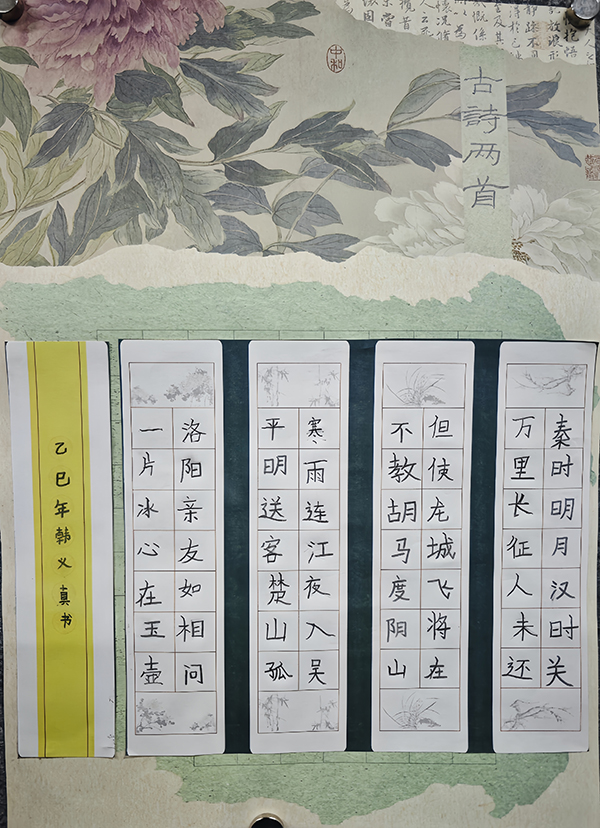 古詩两首
秦时明月汉时关
万里长征人未还
但使龙城飞将在
不教胡马度阴山
寒雨连江夜入吴
平明送客楚山孤
洛阳亲友如相问
一片冰心在玉壶
乙巳年韩义真书
中和